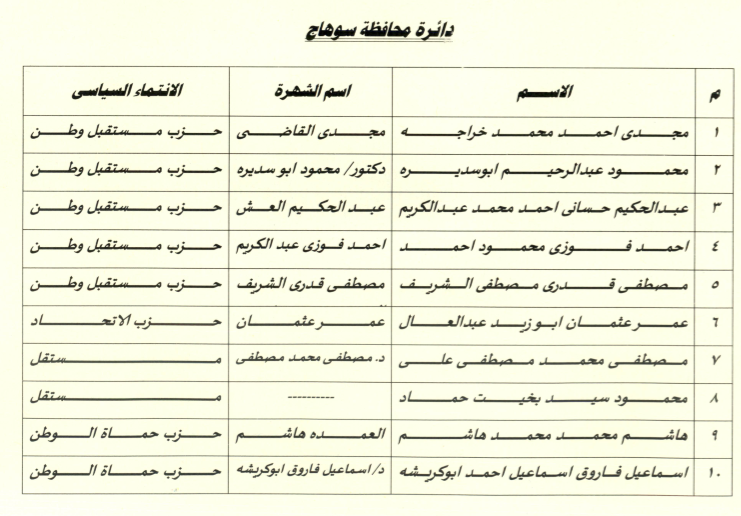 دائرة محافظة سوهاج
م الاسم اسم الشهرة الانتماء السياسى
١ مجدى احمد محمد خراجه مجدى القاضى حزب مستقبل وطن
٢ محمود عبدالرحيم ابوسديره دكتور/ محمود ابو سديره حزب مستقبل وطن
٣ عبدالحكيم حسانى احمد محمد عبدالكريم عبد الحكيم العش حزب مستقبل وطن
٤ احمد فوزى محمود احمد احمد فوزى عبد الكريم حزب مستقبل وطن
٥ مصطفى قدرى مصطفى الشريف مصطفى قدرى الشريف حزب مستقبل وطن
٦ عمر عثمان ابو زيد عبدالعال عمر عثمان حزب الاتحاد
٧ مصطفى محمد مصطفى على د. مصطفى محمد مصطفى مستقل
٨ محمود سيد بخيت حماد ---------- مستقل
٩ هاشم محمد محمد هاشم العمده هاشم حزب حماة الوطن
١٠ اسماعيل فاروق اسماعيل احمد ابوكريشه د/ اسماعيل فاروق ابوكريشه حزب حماة الوطن